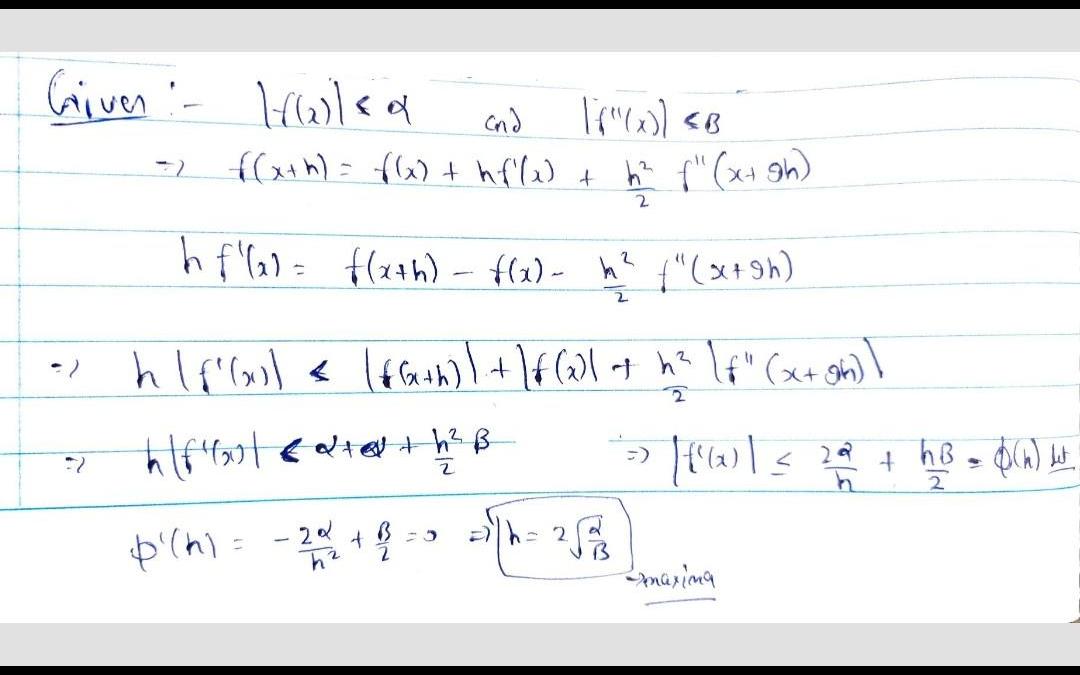 Given :- |f(x)| < α and |f''(x)| < β
=> f(x+h) = f(x) + hf'(x) + h²/2 f''(x+θh)
h f'(x) = f(x+h) - f(x) - h²/2 f''(x+θh)
=> h |f'(x)| < |f(x+h)| + |f(x)| + h²/2 |f''(x+θh)|
=> h|f'(x)| < α+α + h²/2 β => |f'(x)| ≤ 2α/h + hβ/2 = φ(h) let
φ'(h) = -2α/h² + β/2 = 0 => h = 2√(α/β)
→maxima